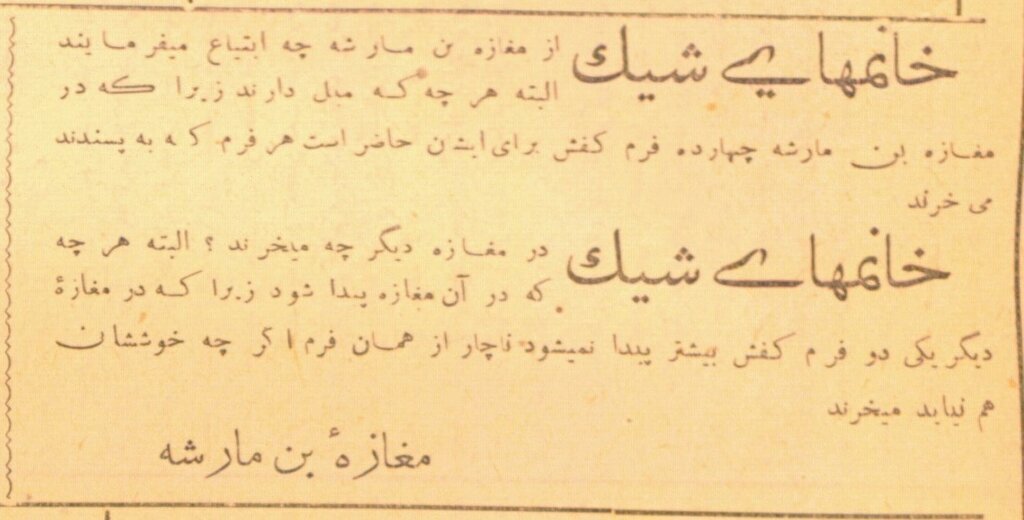 خانمهای شیك از مغازه بن مارشه چه ابتیاع میفرمایند
البته هر چه که میل دارند زیرا که در
مغازه بن مارشه چهارده فرم کفش برای ایشان حاضر است هر فرم که به پسندند
می خرند
خانمهای شیك در مغازه دیگر چه میخرند ؟ البته هر چه
که در آن مغازه پیدا شود زیرا که در مغازهٔ
دیگر یکی دو فرم کفش بیشتر پیدا نمیشود ناچار از همان فرم اگر چه خوششان
هم نیاید میخرند
مغازهٔ بن مارشه